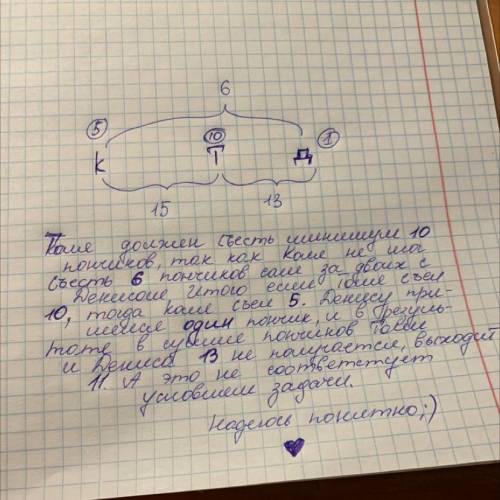 6
5 10 1
К Т Д
15 13
Толя должен съесть минимум 10
пончиков, так как Коля не мог
съесть 6 пончиков сам за двоих с
Денисом Итого если Толя съел
10, тогда Коля съел 5. Денису при-
шелся один пончик, и в резуль-
тате в сумме пончиков Толи
и Дениса 13 не получается, выходит
11. А это не соответствует
условием задачи.
Надеюсь понятно;)